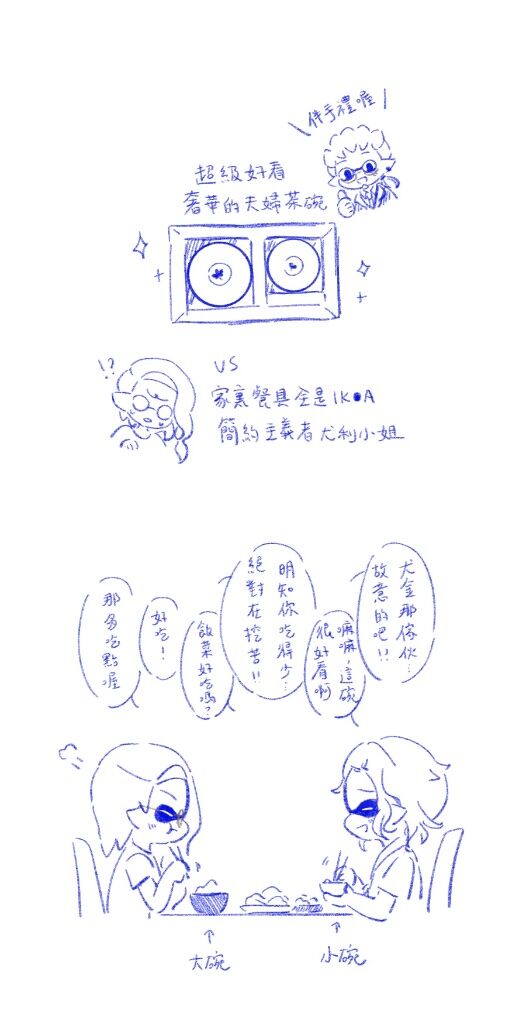 伴手禮喔
超級好看
奢華的夫婦茶碗
!?
VS
家裏餐具全是IK●A
簡約主義者尤利小姐
尤金那傢伙…
故意的吧!!
嘛嘛,這碗
很好看啊
明知你吃得少…
絕對在挖苦!!
飯菜好吃嗎?
好吃!
那多吃點喔
↑
大碗
↑
小碗